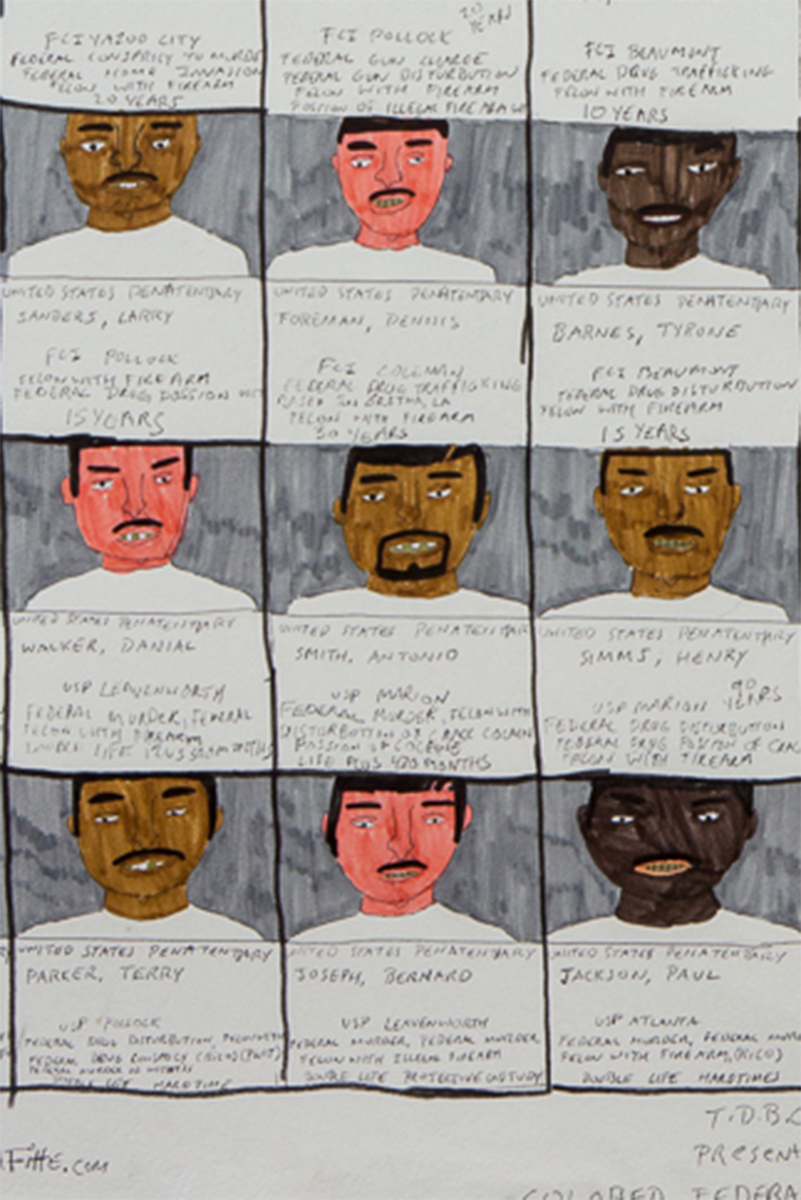 FCI YAZOO CITY
FEDERAL CONSPIRCY TO MURDE
FEDERAL HOME INVASION
FELON WITH FIREARM
20 YEARS
20 YEARS
FCI POLLOCK
FEDERAL GUN CHARGE
FEDERAL GUN DISTURBUTION
FELON WITH FIREARM
POSSION OF ILLEGAL FIREARM
FCI BEAUMONT
FEDERAL DRUG TRAFFICKING
FELON WITH FIREARM
10 YEARS
UNITED STATES PENATENTUARY
SANDERS, LARRY
FCI POLLOCK
FELON WITH FIREARM
FEDERAL DRUG POSSION WIT
15 YEARS
UNITED STATES PENATENTUARY
FOREMAN, DENNIS
FCI COLEMAN
FEDERAL DRUG TRAFFICKING
BASED IN GRETNA, LA
FELON WITH FIREARM
30 YEARS
UNITED STATES PENATENTUARY
BARNES, TYRONE
FCI BEAUMONT
FEDERAL DRUG DISTURBUTION
FELON WITH FIREARM
15 YEARS
UNITED STATES PENATENTUARY
WALKER, DANIAL
USP LEAVENWORTH
FEDERAL MURDER, FEDERAL
FELON WITH FIREARM
DOUBLE LIFE PLUS MONTHS
UNITED STATES PENATENTUAR
SMITH, ANTONIO
USP MARION
FEDERAL MURDER, FELON WITH
DISTURBUTION OF CRACK COCAIN
POSSION OF COCAINE
LIFE PLUS 420 MONTHS
UNITED STATES PENATENTUARY
SIMMS, HENRY
USP MARION 90 YEARS
FEDERAL DRUG DISTURBUTION
FEDERAL DRUG POSSION OF CRAC
FELON WITH FIREARM
UNITED STATES PENATENTUARY
PARKER, TERRY
USP POLLOCK
FEDERAL DRUG DISTURBUTION, FELON WITH
FEDERAL DRUG CONSPACY (RICO)
FEDERAL MURDER OF WITNESS
DOUBLE LIFE MARETIME
UNITED STATES PENATENTUARY
JOSEPH, BERNARD
USP LEAVENWORTH
FEDERAL MURDER, FEDERAL MURDER
FELON WITH ILLEGAL FIREARM
DOUBLE LIFE PROTECTIVE CUSTUDY
UNITED STATES PENATENTUARY
JACKSON, PAUL
USP ATLANTA
FEDERAL MURDER, FEDERAL MURD
FELON WITH FIREARM, (RICO)
DOUBLE LIFE MARETIMES
FiHe.com
T.D.B.C
PRESENT
COLORED FEDERA